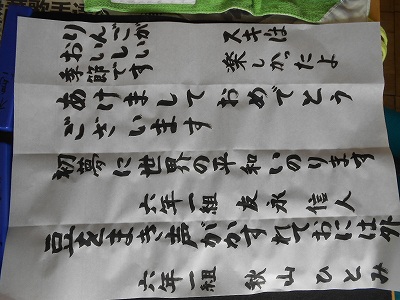 りんごが
おいしい
季節です
スキは
楽しかったよ
あけまして おめでとう
ございます
初夢に世界の平和いのります
六年一組 友永信人
豆をまき声がかすれておには外
六年一組 秋山ひとみ